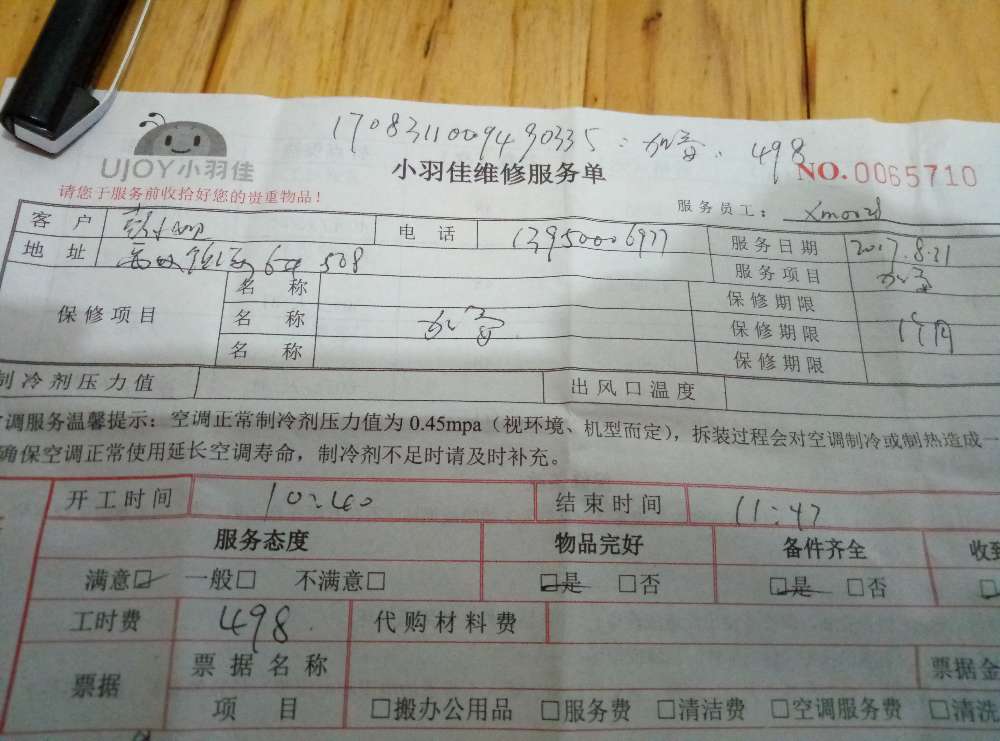 17083110094930335：加音. 498
UJOY小羽佳
小羽佳维修服务单
NO.0065710
请您于服务前收拾好您的贵重物品！
服务员工：Xm0028
客 户 电 话 13950006977 服务日期 2017.8.21
地 址 508 服务项目
保修项目 名 称 保修期限
名 称 保修期限 1个月
名 称 保修期限
制冷剂压力值 出风口温度
调服务温馨提示：空调正常制冷剂压力值为 0.45mpa（视环境、机型而定），拆装过程会对空调制冷或制热造成一
确保空调正常使用延长空调寿命，制冷剂不足时请及时补充。
开工时间 10:40 结束时间 11:47
服务态度 物品完好 备件齐全 收到
满意□ 一般□ 不满意□ □是 □否 □是 □否 □
工时费 498 代购材料费
票据 票据名称 票据金
项 目 □搬办公用品 □服务费 □清洁费 □空调服务费 □清洗